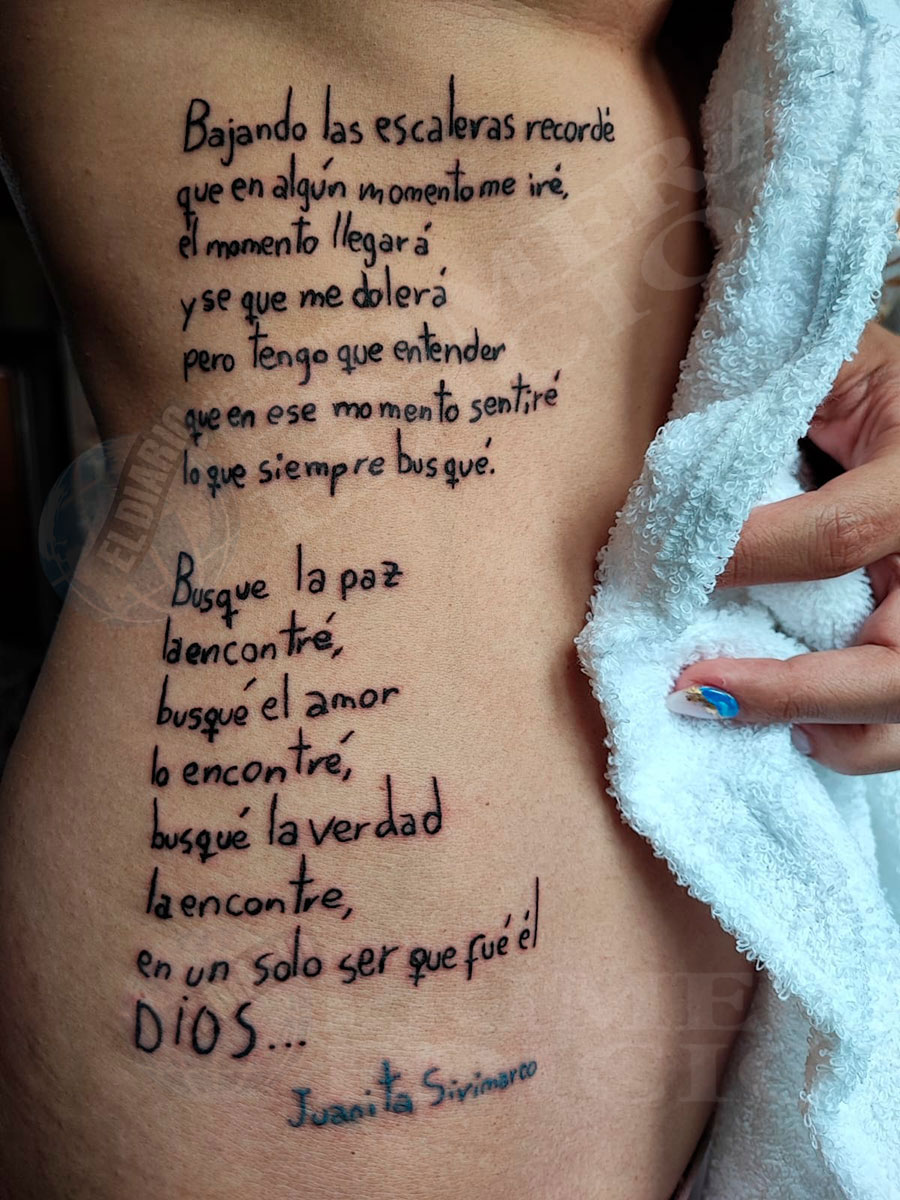 Bajando las escaleras recordé
que en algún momento me iré,
el momento llegará
y se que me dolerá
pero tengo que entender
que en ese momento sentiré
lo que siempre busqué.
Busque la paz
la encontré,
busqué el amor
lo encontré,
busqué la verdad
la encontre,
en un solo ser que fué él
DiOS...
Juanita Sirimarco
EL DIARIO